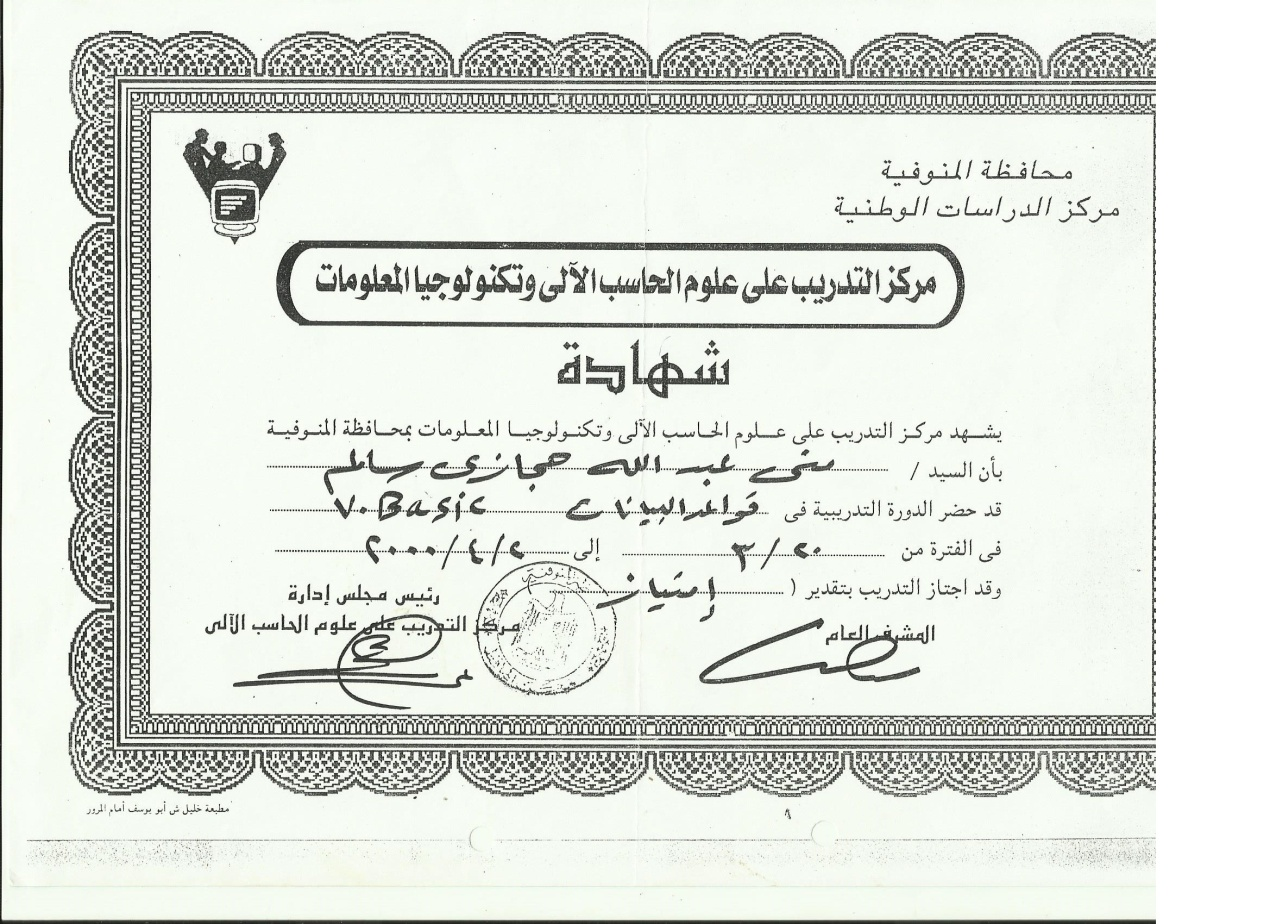 محافظة المنوفية
مركز الدراسات الوطنية
مركز التدريب على علوم الحاسب الآلى وتكنولوجيا المعلومات
شهادة
يشهد مركز التدريب على علوم الحاسب الآلى وتكنولوجيا المعلومات بمحافظة المنوفية
بأن السيد / منى عبد الله حجازى سالم
قد حضر الدورة التدريبية فى قواعد البيانات V.Basic
فى الفترة من ٢٠ / ٣ إلى ٢ / ٤ / ٢٠٠٠
وقد اجتاز التدريب بتقدير ( إمتياز
المشرف العام
رئيس مجلس إدارة
مركز التدريب على علوم الحاسب الآلى
مطبعة خليل ش أبو يوسف أمام المرور